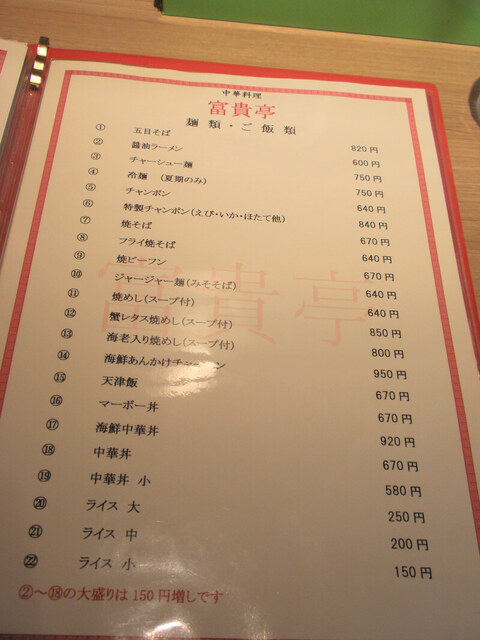 中華料理
富貴亭
麺類・ご飯類
① 五目そば 820円
② 醤油ラーメン 600円
③ チャーシュー麺 750円
④ 冷麺 (夏期のみ) 750円
⑤ チャンポン 640円
⑥ 特製チャンポン(えび・いか・ほたて他) 840円
⑦ 焼そば 670円
⑧ フライ焼そば 640円
⑨ 焼ビーフン 670円
⑩ ジャージャー麺(みそそば) 640円
⑪ 焼めし(スープ付) 640円
⑫ 蟹レタス焼めし(スープ付) 850円
⑬ 海老入り焼めし(スープ付) 800円
⑭ 海鮮あんかけチャーハン 950円
⑮ 天津飯 670円
⑯ マーボー丼 670円
⑰ 海鮮中華丼 920円
⑱ 中華丼 670円
⑲ 中華丼 小 580円
⑳ ライス 大 250円
㉑ ライス 中 200円
㉒ ライス 小 150円
②～⑱の大盛りは150円増しです
富貴亭